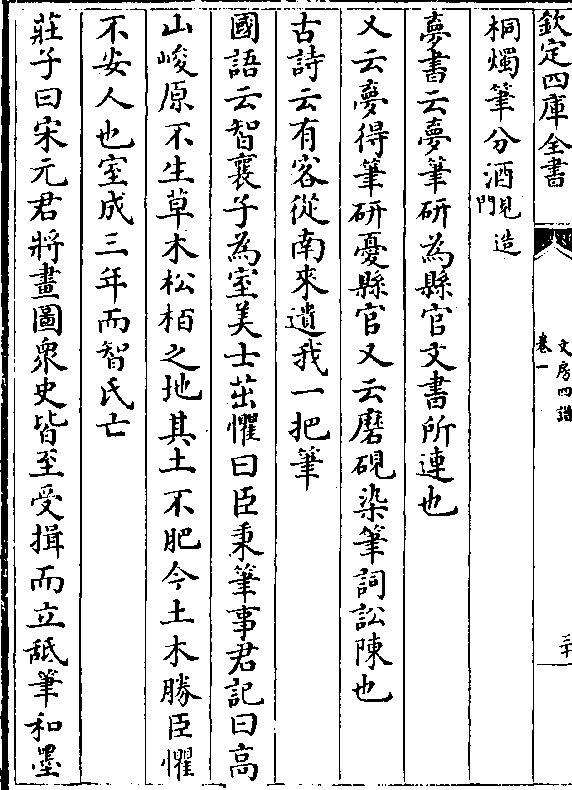 欽定四庫全書
文房四譜
卷一
三十
桐燭筆分酒見造門
夢書云夢筆研為縣官文書所連也
又云夢得筆研憂縣官又云磨硯染筆詞訟陳也
古詩云有客從南來遺我一把筆
國語云智襄子為室美士茁懼曰臣秉筆事君記曰高
山峻原不生草木松栢之地其土不肥今土木勝臣懼
不安人也室成三年而智氏亡
莊子曰宋元君將畫圖衆史皆至受揖而立舐筆和墨